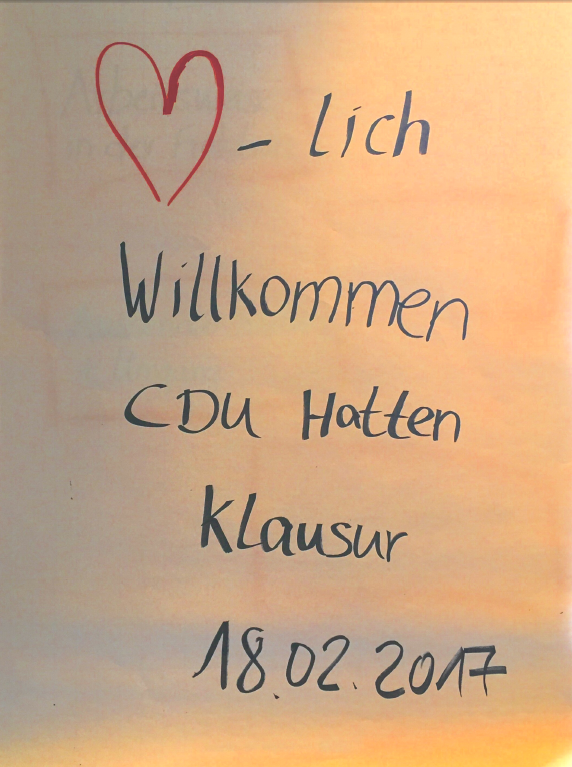 ❤-lich
Willkommen
CDU Hatten
Klausur
18.02.2017